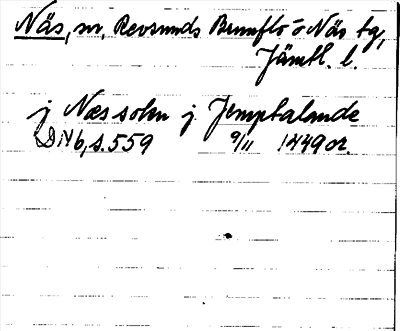 Näs, sn, Revsunds Brunflo o Näs tg,
Jämtl. l.
j Næs sokn j Jemptalande
DN 6, s. 559 9/11 1449 or.